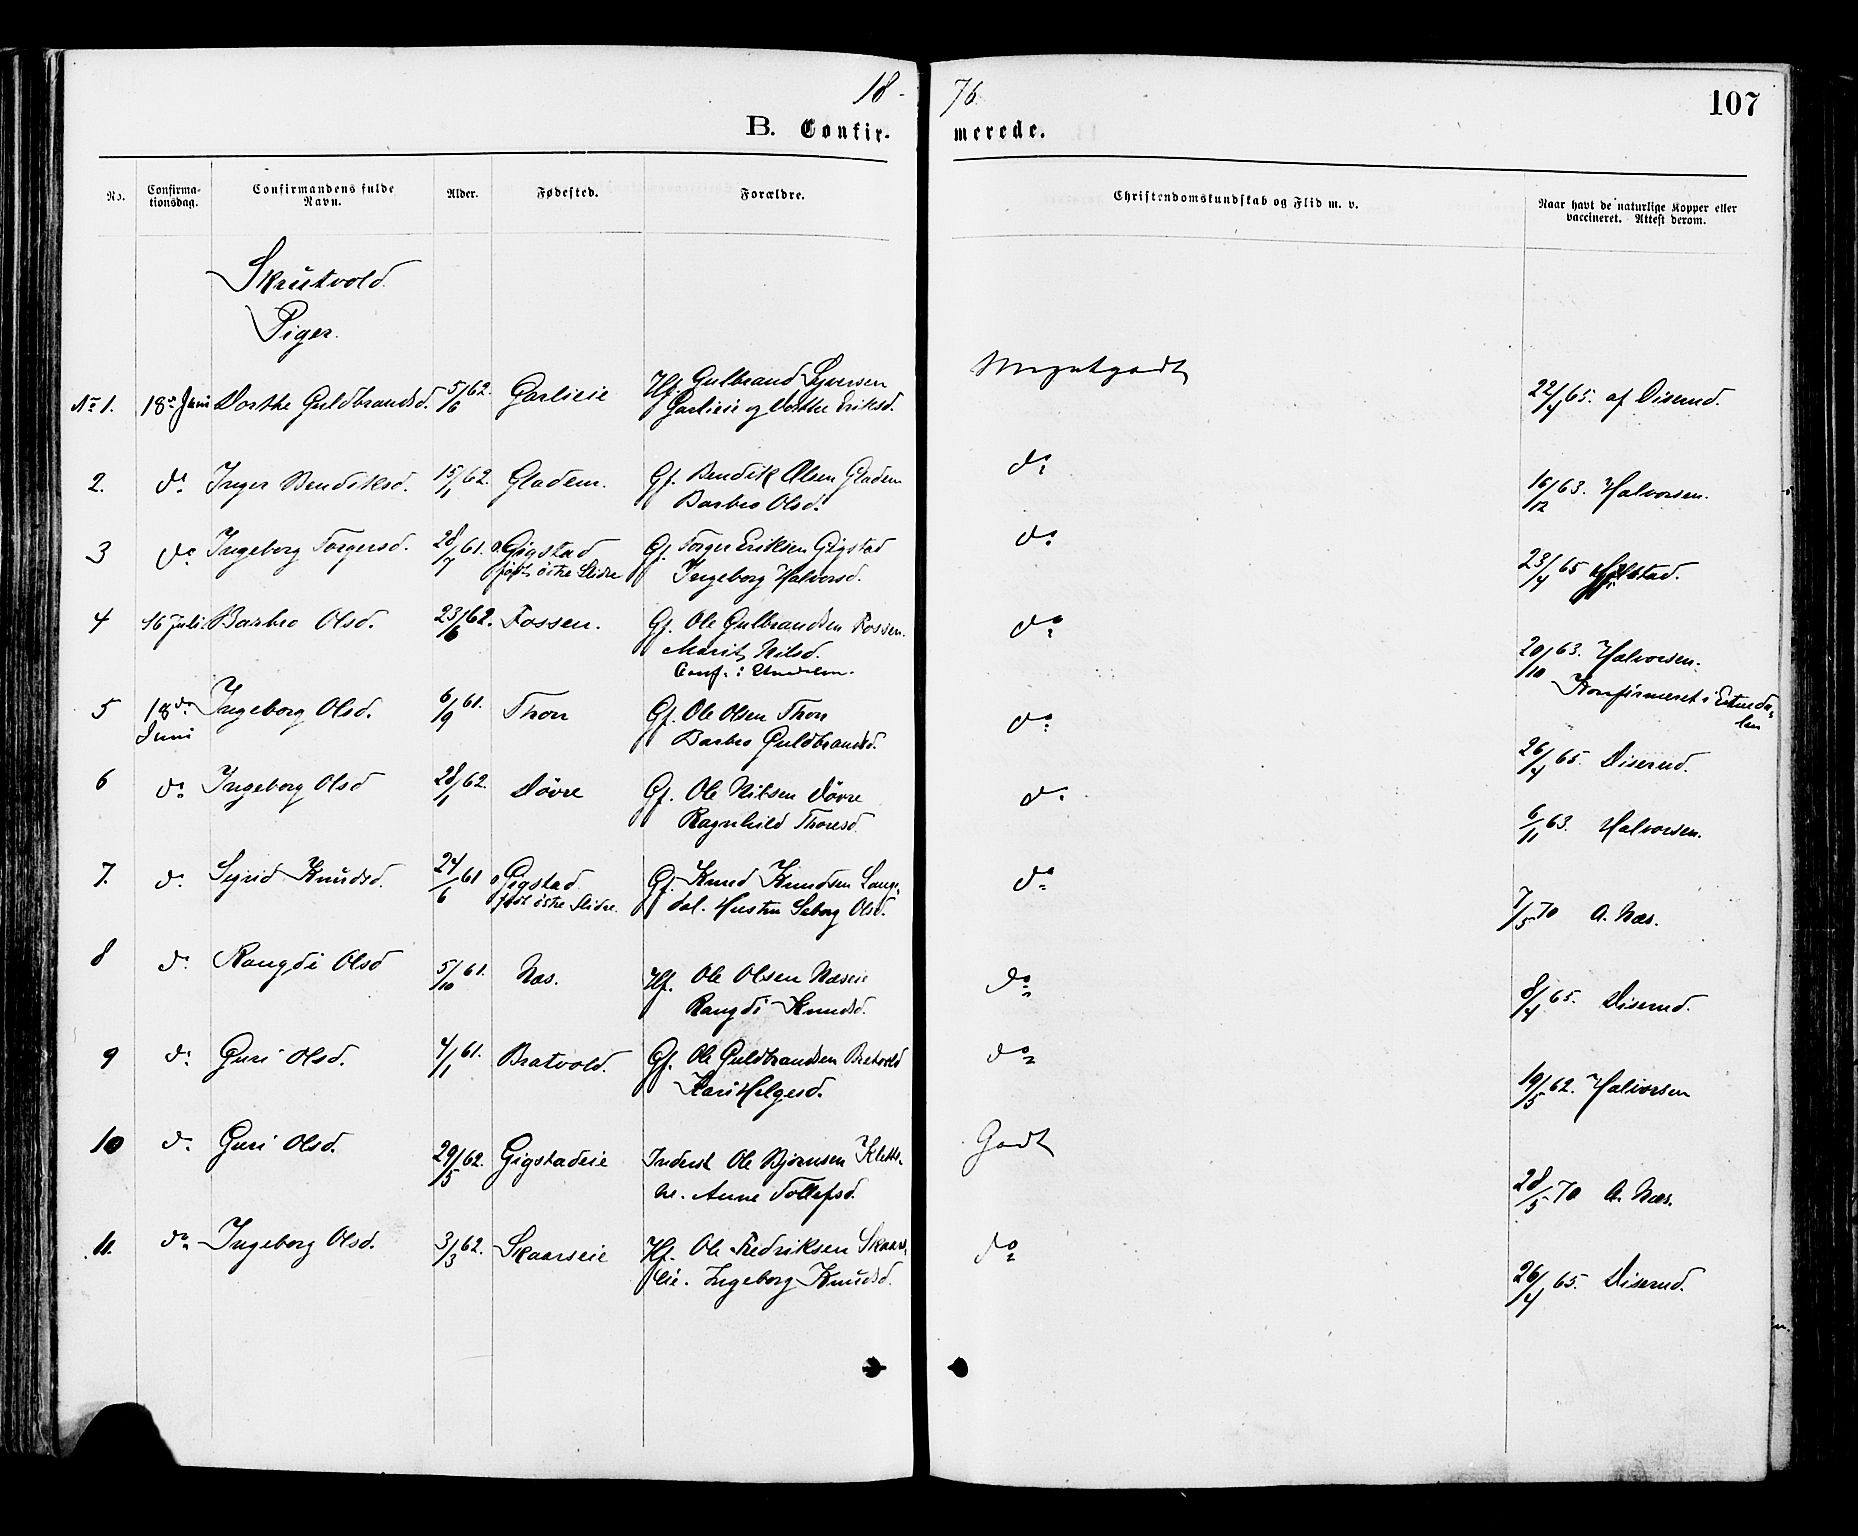 18-76.
107
B. Confirmerede.
No. Confirmationsdag. Confirmandens fulde Navn. Alder. Fødested. Forældre. Christendomskundskab og Flid m. v. Naar havt de naturlige Kopper eller vaccineret. Attest derom.
Skrutvold
Piger.
No 1. 18de Juni Dorthe Guldbrandsd. 5/6 62. Garlieie Hf. Gulbrand Syversen Megetgodt 22/4 65. af Diserud.
Garlieie og Dorthe Eriksd.
2. do Inger Bendiksd. 15/1 62. Gladem. Gf. Bendik Olsen Gladem do 16/12 63. Halvorsen.
Barbro Olsd.
3 do Ingeborg Torgersd. 28/7 61. Gigstad Gf. Torger Eriksen Gigstad do 23/4 65
født østre Slidre Ingeborg Halvorsd.
4 16 Juli Barbro Olsd. 23/6 62. Fossen. Gf. Ole Gulbrandsen Fossen. do 20/10 63. Halvorsen.
Marit Nilsd. Konfirmeret i Etnedalen
Conf. i
5 18de Juni Ingeborg Olsd. 6/9 61. Thon Gf. Ole Olsen Thon do 26/4 65. Diserud.
Barbro Guldbrandsd.
6 do Ingeborg Olsd 28/1 62. Døvre Gf. Ole Nilsen Døvre do 6/1 63. Halvorsen.
Ragnhild Thoresd.
7. do Sigrid Knudsd. 24/6 61 Gigstad Gf. Knud Knudsen Lang- do 7/5 70 A. Næs.
født østre Slidre. dal. Hustru Seborg Olsd.
8 do Rangdi Olsd 5/10 61. Næs. Hf. Ole Olsen Næseie do 8/4 65. Diserud.
Rangdi Knudsd.
9 do Guri Olsd. 4/1 61. Bratvold. Gf. Ole Guldbrandsen Bratvold do 19/5 62. Halvorsen
Kari Helgesd.
10 do Guri Olsd. 29/5 62. Gigstadeie Inderst Ole Bjørnsen Klette- Godt 28/5 70 A. Næs.
Anne Tollefsd.
11. do Ingeborg Olsd. 3/3 62. Skaarseie Hf. Ole Fredriksen Skaars- do 26/4 65. Diserud.
eie. Ingeborg Knudsd.